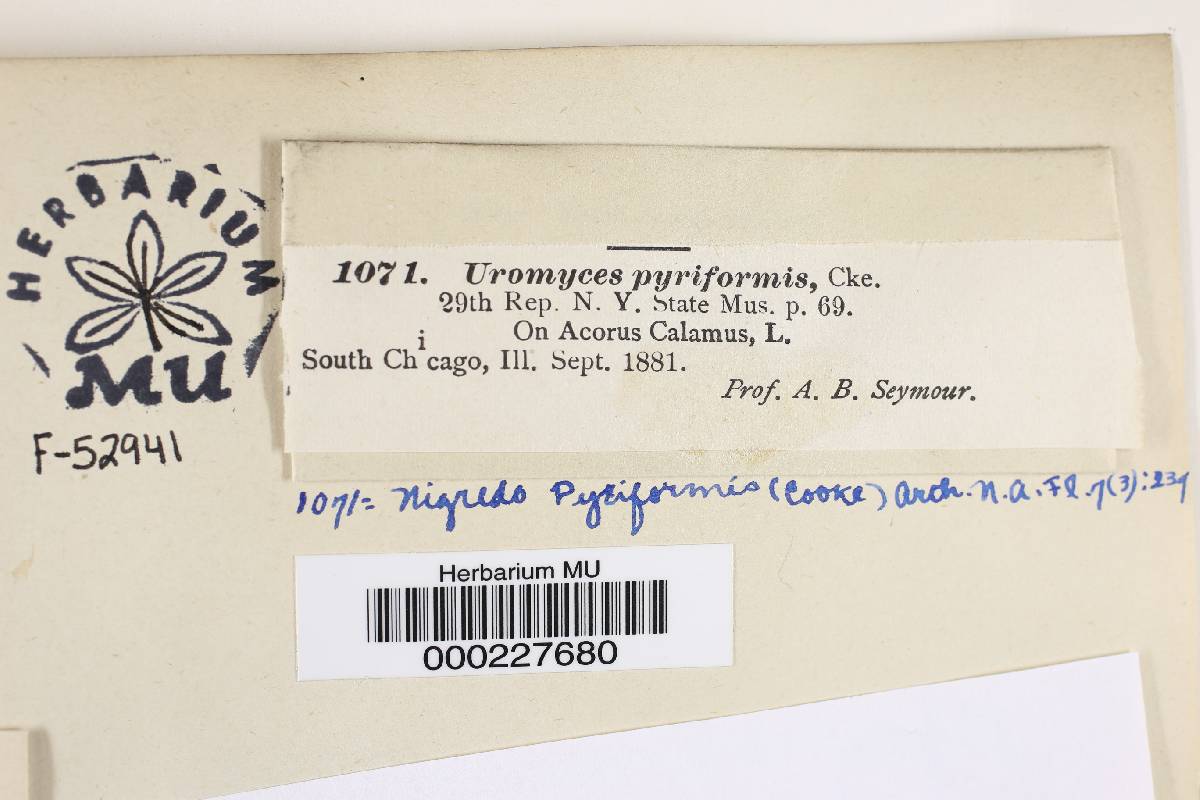 HERBARIUM
MU
F-52941
1071. Uromyces pyriformis, Cke.
29th Rep. N. Y. State Mus. p. 69.
On Acorus Calamus, L.
South Chicago, Ill. Sept. 1881.
Prof. A. B. Seymour.
1071= Nigredo Pyriformis (Cooke) Arth. N. A. Fl. 7(3):239
Herbarium MU
000227680